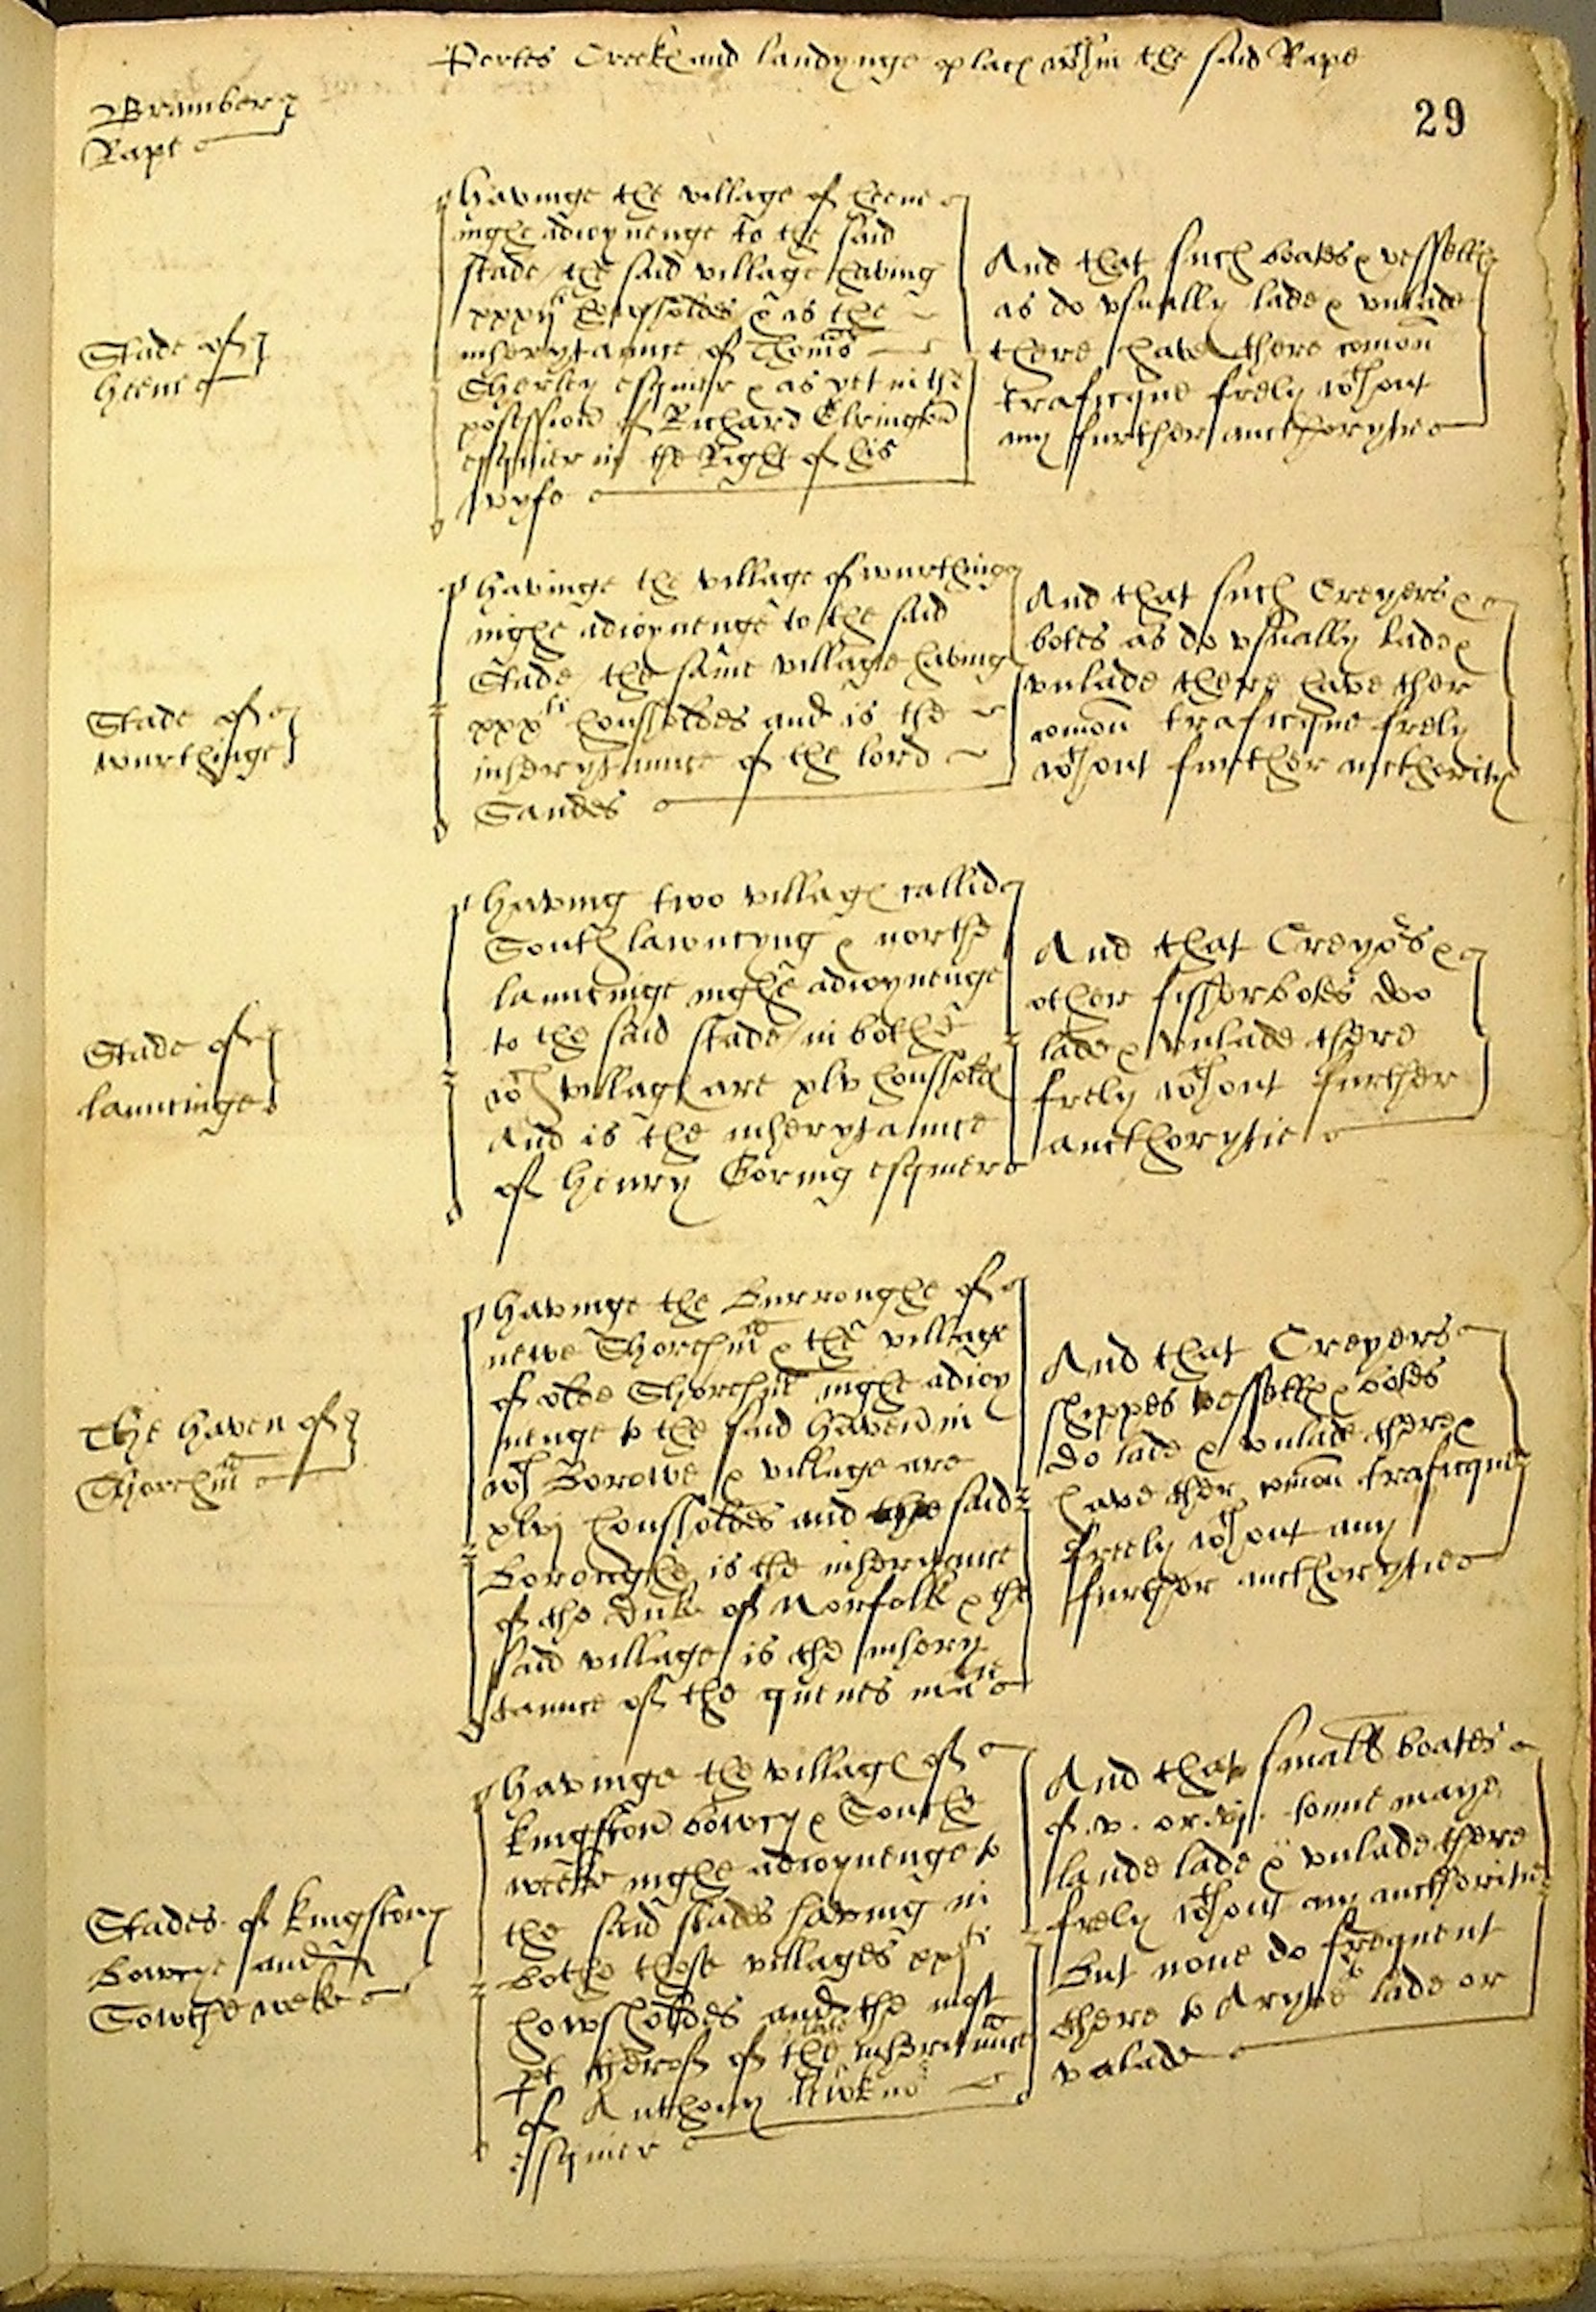 Portes Creekes and landynge places wthin the said Rape
29
Bramber
Rape
Stade of
heene
havinge the village of heene
nighe adioynenge to the said
stade / the said village having
xxxij housholdes & is the
inherytaunce of Thoms
Sherley esquier & as yet in the
possession of Richard Elrington
esquier in the Right of his
wyfe
And that such boates & vesselles
as do vsually lade & vnlade
there have there comon
traficque frely wthout
any further aucthorytie
Stade of
wurthinge
havinge the village of wurthing
nighe adioynenge to the said
Stade / the same village having
xxxti housholdes and is the
inherytaunce of the lord
Sandes
And that such Creyers &
botes as do vsually lade &
vnlade there have ther
comon traficque frely
wthout further aucthoritie
Stade of
launcinge
having two villages callid
South lawncyng & northe
launcinge nighe adioynenge
to the said stade / in bothe
wch villages are xlv housholdes
And is the inherytaunce
of Henry Goring esquier
And that Creyors &
other fissherbotes doo
lade & vnlade there
frely wthout further
aucthorytie
The haven of
Shorehm
havinge the Burroughe of
newe Shorehm & the village
of olde Shorehm nighe adioy
nenge to the said haven in
wch Borowe & village are
xlvj housholdes and the said
Boroughe is the inherytaunce
of the Duke of Norfolk & the
said village is the inhery
taunce of the quenes matie
And that Creyers
shippes vesselles & botes
do lade & vnlade there &
have ther comon traficque
freely wthout any
further aucthorytie
Stades of kingston
bowcye and
Sowthe weke
havinge the villages of
kingston bowcy & Southe
weeke nighe adioynenge to
the said stades having in
bothe those villages xxti
howsholdes and the most
pt therof of the late inheritaunce
of Anthony lewknor
esquier
And that small boates
of .v. or .vj. tonne maye
lande lade & vnlade there
frely wthout any aucthoritie
But none do frequent
there to Aryve lade or
vnlade